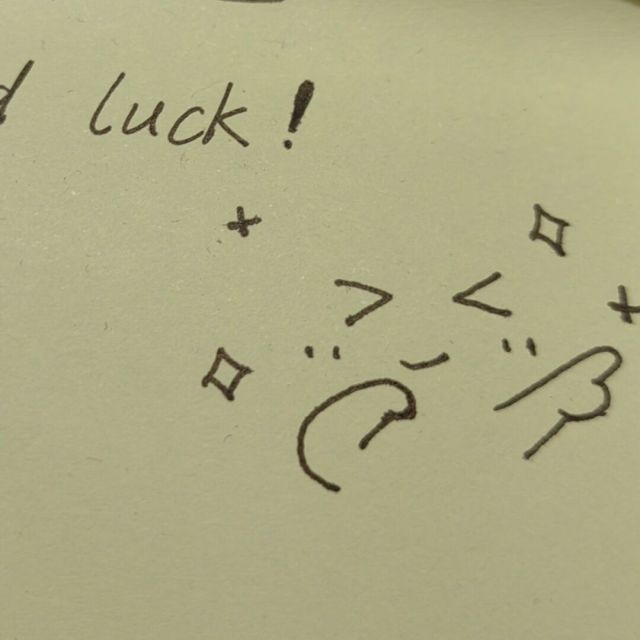 d luck!